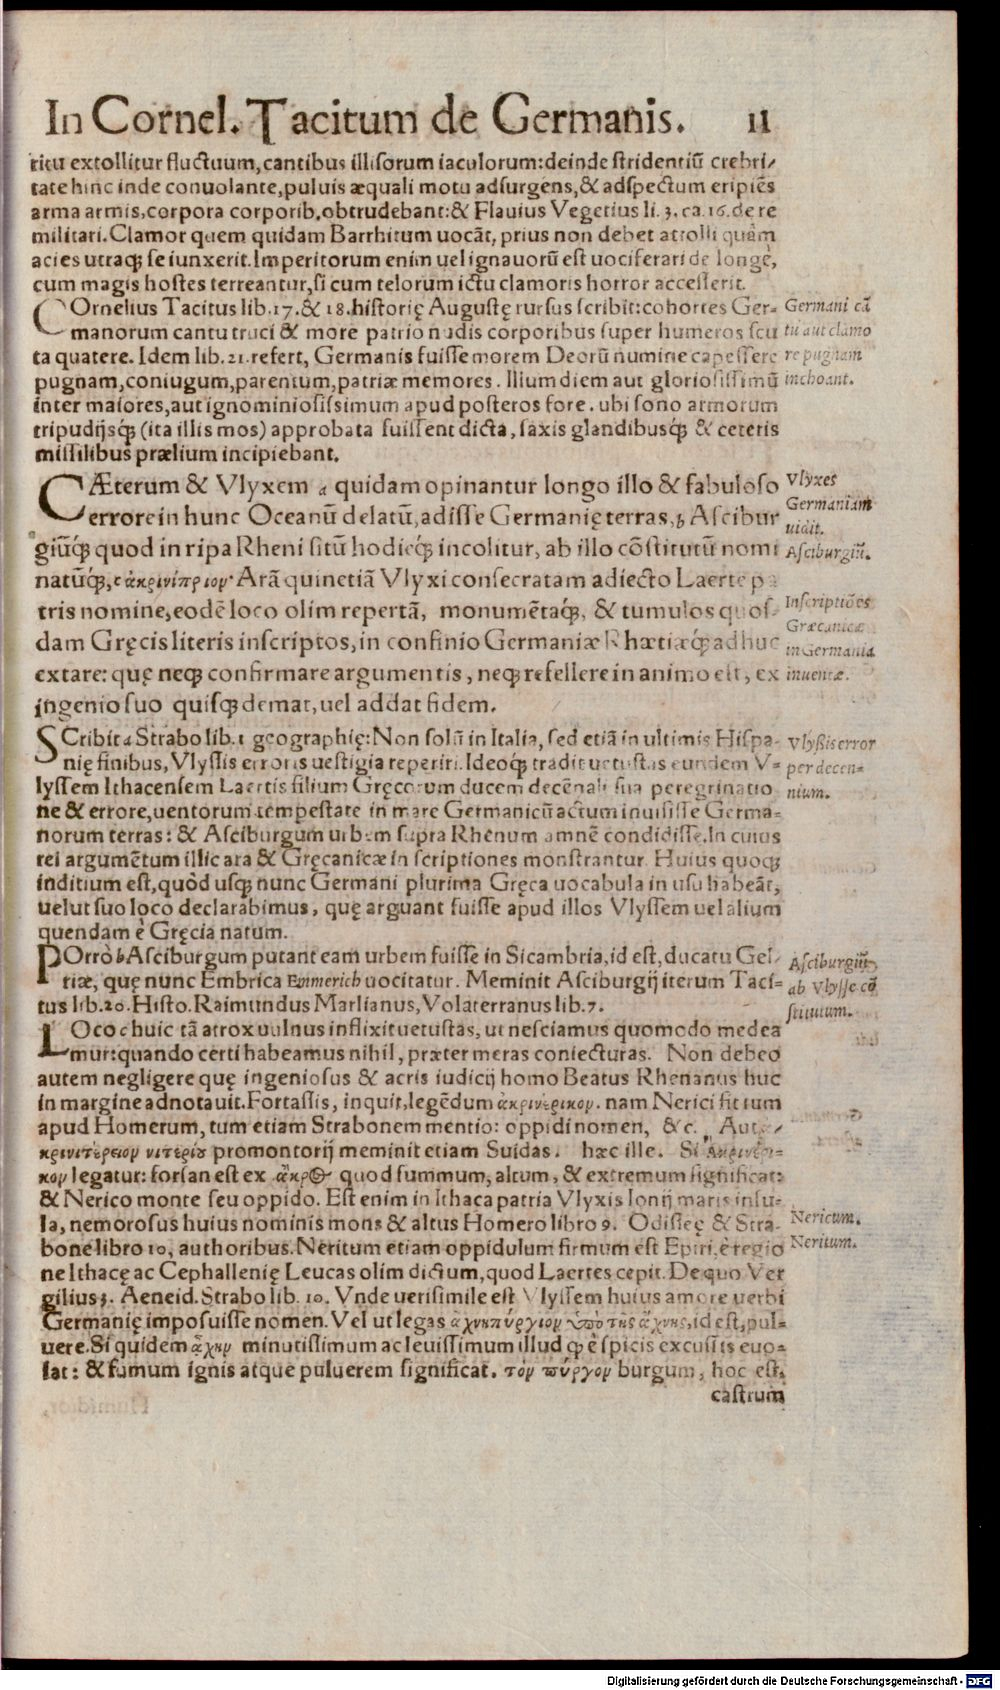 In Cornel. Tacitum de Germanis. 11
ritu extollitur fluctuum, cantibus illisorum iaculorum: deinde stridentiũ crebri⸗
tate hinc inde conuolante, puluis æquali motu adsurgens, & adspectum eripiẽs
arma armis, corpora corporib. obtrudebant: & Flauius Vegetius li. 3. ca. 16. de re
militari. Clamor quem quidam Barrhitum uocãt, prius non debet attolli quàm
acies utraqꝫ se iunxerit. Imperitorum enim uel ignauorũ est uociferari de longè,
cum magis hostes terreantur, si cum telorum ictu clamoris horror accesserit.
COrnelius Tacitus lib. 17. & 18. historię Augustę rursus scribit: cohortes Ger⸗
manorum cantu truci & more patrio nudis corporibus super humeros scu
ta quatere. Idem lib. 21. refert, Germanis fuisse morem Deorũ numine capessere
pugnam, coniugum, parentum, patriæ memores. Illum diem aut gloriosissimũ
inter maiores, aut ignominiosissimum apud posteros fore. ubi sono armorum
tripudijsqꝫ (ita illis mos) approbata fuissent dicta, saxis glandibusqꝫ & ceteris
missilibus prælium incipiebant.
Germani cã
tu aut clamo
re pugnam
inchoant.
CÆterum & Vlyxem a quidam opinantur longo illo & fabuloso
errore in hunc Oceanũ delatũ, adisse Germanię terras, b Ascibur
giũqꝫ quod in ripa Rheni sitũ hodieqꝫ incolitur, ab illo cõstitutũ nomi
natũqꝫ, c ἀκρινίπριον· Arã quinetiã Vlyxi consecratam adiecto Laerte pa
tris nomine, eodẽ loco olim repertã, monumẽtaqꝫ, & tumulos quos⸗
dam Gręcis literis inscriptos, in confinio Germaniæ Rhætiæqꝫ adhuc
extare: quę neqꝫ confirmare argumentis, neqꝫ refellere in animo est, ex
ingenio suo quisqꝫ demat, uel addat fidem.
Vlyxes
Germaniam
uidit.
Asciburgiũ.
Inscriptiões
Græcanicæ
in Germania
inuentæ.
SCribit a Strabo lib. 1 geographię: Non solũ in Italia, sed etiã in ultimis Hispa⸗
nię finibus, Vlyssis erroris uestigia reperiri. Ideoqꝫ tradit uetustas eundem V⸗
lyssem Ithacensem Laertis filium Gręcorum ducem decẽnali sua peregrinatio
ne & errore, uentorum tempestate in mare Germanicũ actum inuisisse Germa⸗
norum terras: & Asciburgum urbem supra Rhenum amnẽ condidisse. In cuius
rei argumẽtum illic ara & Gręcanicæ inscriptiones monstrantur. Huius quoqꝫ
inditium est, quòd usqꝫ nunc Germani plurima Gręca uocabula in usu habeãt,
uelut suo loco declarabimus, quę arguant fuisse apud illos Vlyssem uel alium
quendam è Gręcia natum.
Vlyßis error
per decen⸗
nium.
POrrò b Asciburgum putant eam urbem fuisse in Sicambria, id est, ducatu Gel⸗
triæ, quę nunc Embrica Emmerich uocitatur. Meminit Asciburgij iterum Taci⸗
tus lib. 20. Histo. Raimundus Marlianus, Volaterranus lib. 7.
Asciburgiũ
ab Vlysse cõ
stitutum.
LOco c huic tã atrox uulnus inflixit uetustas, ut nesciamus quomodo medea
mur: quando certi habeamus nihil, præter meras coniecturas. Non debeo
autem negligere quę ingeniosus & acris iudicij homo Beatus Rhenanus huc
in margine adnotauit. Fortassis, inquit, legẽdum ἀκρινέρικον. nam Nerici fit tum
apud Homerum, tum etiam Strabonem mentio: oppidi nomen, &c. Aut
κρινιτέρειον νιτερίȣ promontorij meminit etiam Suidas. hæc ille. Si ἀκρινέρι⸗
κον legatur: forsan est ex ἄκρος quod summum, altum, & extremum significat:
& Nerico monte seu oppido. Est enim in Ithaca patria Vlyxis Ionij maris insu⸗
la, nemorosus huius nominis mons & altus Homero libro 9. Odisseę & Stra⸗
bone libro 10, authoribus. Neritum etiam oppidulum firmum est Epiri, è regio
ne Ithacę ac Cephallenię Leucas olim dictum, quod Laertes cepit. De quo Ver
gilius 3. Aeneid. Strabo lib. 10. Vnde uerisimile est Vlyssem huius amore uerbi
Germanię imposuisse nomen. Vel ut legas ἀχνηπύργιον ὑπὸ τῆς ἄχνης, id est, pul⸗
uere. Si quidem ἄχνην minutissimum ac leuissimum illud qꝫ è spicis excussis euo⸗
lat: & fumum ignis atque puluerem significat. τὸν πύργον burgum, hoc est,
Nericum.
Neritum.
castrum
Digitalisierung gefördert durch die Deutsche Forschungsgemeinschaft - DFG